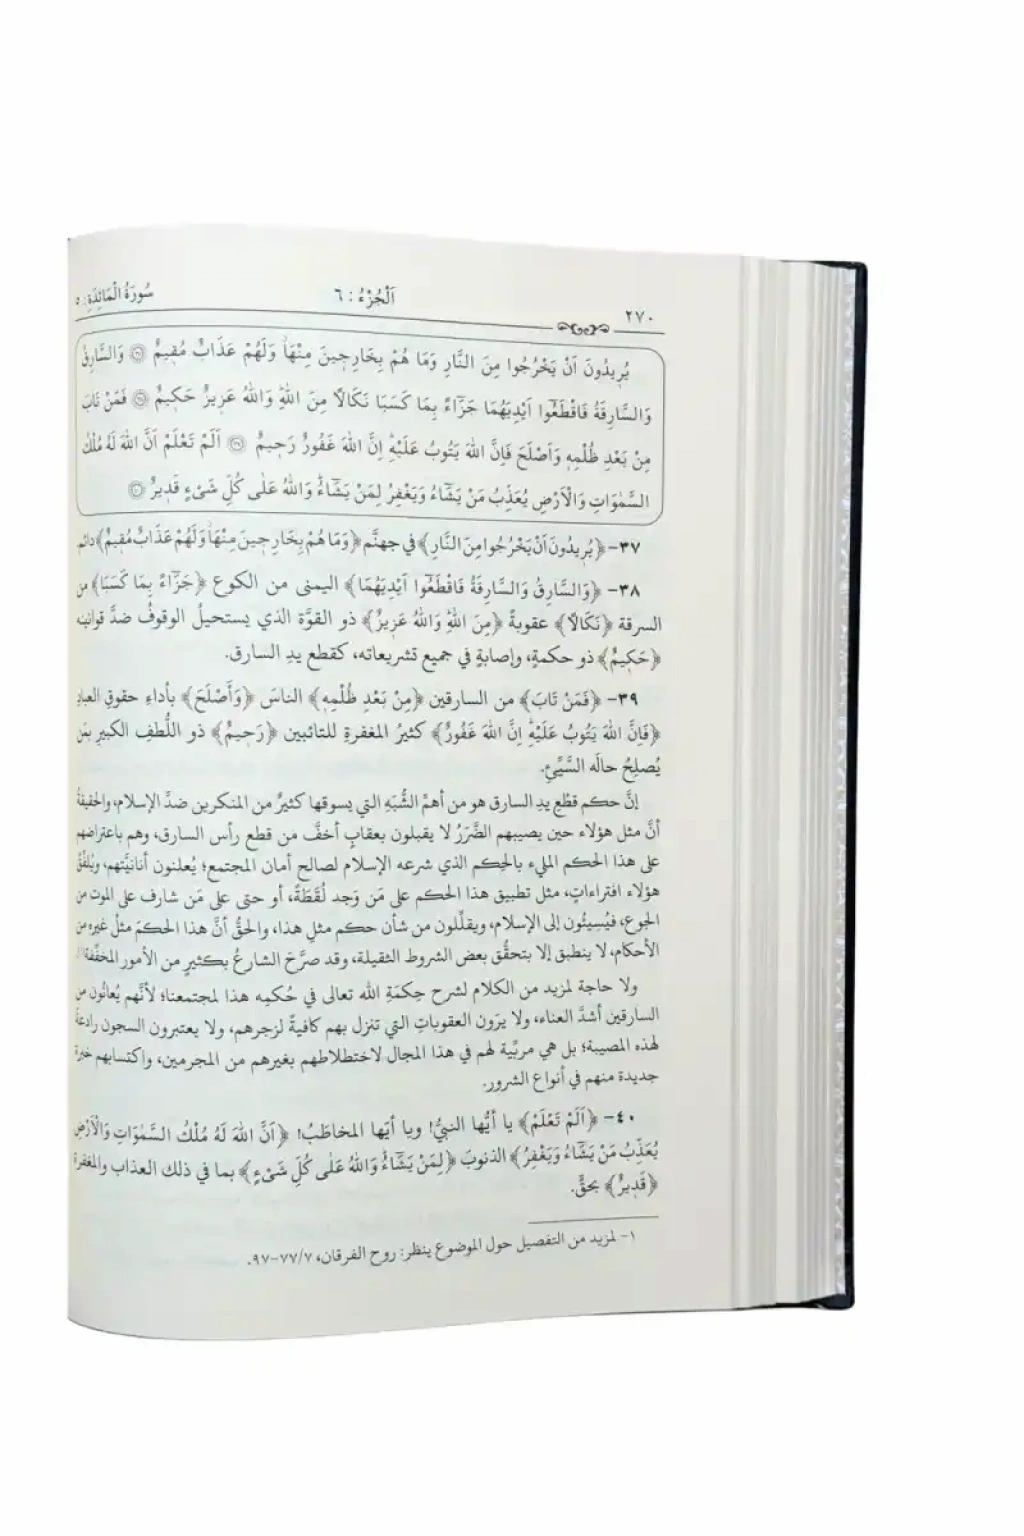 ٢٧٠
اَلْجُزْءُ : ٦
سُورَةُ الْمَائِدَةِ: ٥
يُرِيدُونَ اَنْ يَخْرُجُوا مِنَ النَّارِ وَمَا هُمْ بِخَارِجِينَ مِنْهَاۘ وَلَهُمْ عَذَابٌ مُقِيمٌ ﴿٣٧﴾ وَالسَّارِقُ
وَالسَّارِقَةُ فَاقْطَعُٓوا اَيْدِيَهُمَا جَزَٓاءً بِمَا كَسَبَا نَكَالًا مِنَ اللّٰهِۜ وَاللّٰهُ عَزِيزٌ حَكِيمٌ ﴿٣٨﴾ فَمَنْ تَابَ
مِنْ بَعْدِ ظُلْمِهِ وَاَصْلَحَ فَاِنَّ اللّٰهَ يَتُوبُ عَلَيْهِۜ اِنَّ اللّٰهَ غَفُورٌ رَحِيمٌ ﴿٣٩﴾ اَلَمْ تَعْلَمْ اَنَّ اللّٰهَ لَهُ مُلْكُ
السَّمٰوَاتِ وَالْاَرْضِ يُعَذِّبُ مَنْ يَشَٓاءُ وَيَغْفِرُ لِمَنْ يَشَٓاءُۜ وَاللّٰهُ عَلٰى كُلِّ شَيْءٍ قَدِيرٌ ﴿٤٠﴾
٣٧- ﴿يُرِيدُونَ اَنْ يَخْرُجُوا مِنَ النَّارِ﴾ في جهنَّم ﴿وَمَا هُمْ بِخَارِجِينَ مِنْهَاۘ وَلَهُمْ عَذَابٌ مُقِيمٌ﴾ دائم
٣٨- ﴿وَالسَّارِقُ وَالسَّارِقَةُ فَاقْطَعُٓوا اَيْدِيَهُمَا﴾ اليمنى من الكوع ﴿جَزَٓاءً بِمَا كَسَبَا﴾ من
السرقة ﴿نَكَالًا﴾ عقوبةً ﴿مِنَ اللّٰهِۜ وَاللّٰهُ عَزِيزٌ﴾ ذو القوَّة الذي يستحيلُ الوقوفُ ضدَّ قوانينه
﴿حَكِيمٌ﴾ ذو حكمةٍ، وإصابةٍ في جميع تشريعاته، كقطع يدِ السارق.
٣٩- ﴿فَمَنْ تَابَ﴾ من السارقين ﴿مِنْ بَعْدِ ظُلْمِهِ﴾ الناسَ ﴿وَأَصْلَحَ﴾ بأداءِ حقوقِ العبادِ
﴿فَاِنَّ اللّٰهَ يَتُوبُ عَلَيْهِۜ اِنَّ اللّٰهَ غَفُورٌ﴾ كثيرُ المغفرةِ للتائبين ﴿رَحِيمٌ﴾ ذو اللُّطفِ الكبيرِ بمَن
يُصلِحُ حالَه السَّيِّئِ.
إنَّ حكم قطْعِ يدِ السارق هو من أهمِّ الشُّبَهِ التي يسوقها كثيرٌ من المنكرين ضدَّ الإسلام، والحقيقةُ
أنَّ مثل هؤلاء حين يصيبهم الضَّرَرُ لا يقبلون بعقابٍ أخفَّ من قطع رأس السارق، وهم باعتراضهم
على هذا الحكم المليء بالحِكم الذي شرعه الإسلام لصالح أمان المجتمع؛ يُعلنون أنانيَّتهم، ويُلفِّقُ
هؤلاء افتراءاتٍ، مثل تطبيق هذا الحكم على مَن وَجد لُقَطَةً، أو حتى على مَن شارف على الموت من
الجوع، فيُسِيئُون إلى الإسلام، ويقلِّلون من شأن حكم مثلِ هذا، والحقُّ أنَّ هذا الحكمَ مثلُ غيره من
الأحكام، لا ينطبق إلا بتحقُّق بعض الشروط الثقيلة، وقد صرَّحَ الشارعُ بكثيرٍ من الأمور المخفِّفة
ولا حاجة لمزيد من الكلام لشرح حِكمَةِ الله تعالى في حُكمِه هذا لمجتمعنا؛ لأنَّهم يُعانُون من
السارقين أشدَّ العناء، ولا يرَون العقوباتِ التي تنزل بهم كافيةً لزجرهم، ولا يعتبرون السجون رادعةً
لهذه المصيبة؛ بل هي مربِّية لهم في هذا المجال لاختطلاطهم بغيرهم من المجرمين، واكتسابهم خبرة
جديدة منهم في أنواع الشرور.
٤٠- ﴿اَلَمْ تَعْلَمْ﴾ يا أيُّها النبيُّ! ويا أيّها المخاطَبُ! ﴿اَنَّ اللّٰهَ لَهُ مُلْكُ السَّمٰوَاتِ وَالْاَرْضِ
يُعَذِّبُ مَنْ يَشَٓاءُ وَيَغْفِرُ﴾ الذنوبَ ﴿لِمَنْ يَشَٓاءُۜ وَاللّٰهُ عَلٰى كُلِّ شَيْءٍ﴾ بما في ذلك العذاب والمغفرة
﴿قَدِيرٌ﴾ بحقٍّ.
١- لمزيد من التفصيل حول الموضوع ينظر: روح الفرقان، ٧/ ٧٧-٩٧.